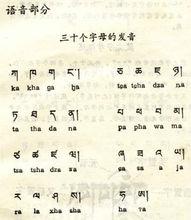 语音部分
三十个字母的发音
ཀ ཁ ག ང། ཅ ཆ ཇ ཉ།
ka kha ga ŋa
ཏ ཐ ད ན། པ ཕ བ མ།
ta tha da na pha wa ma
ཙ ཚ ཛ ཝ། ཞ ཟ འ ཡ།
tsa tsha dza sa ja
ར ལ ཤ ས། ཧ ཨ།
ra la xha sha ha